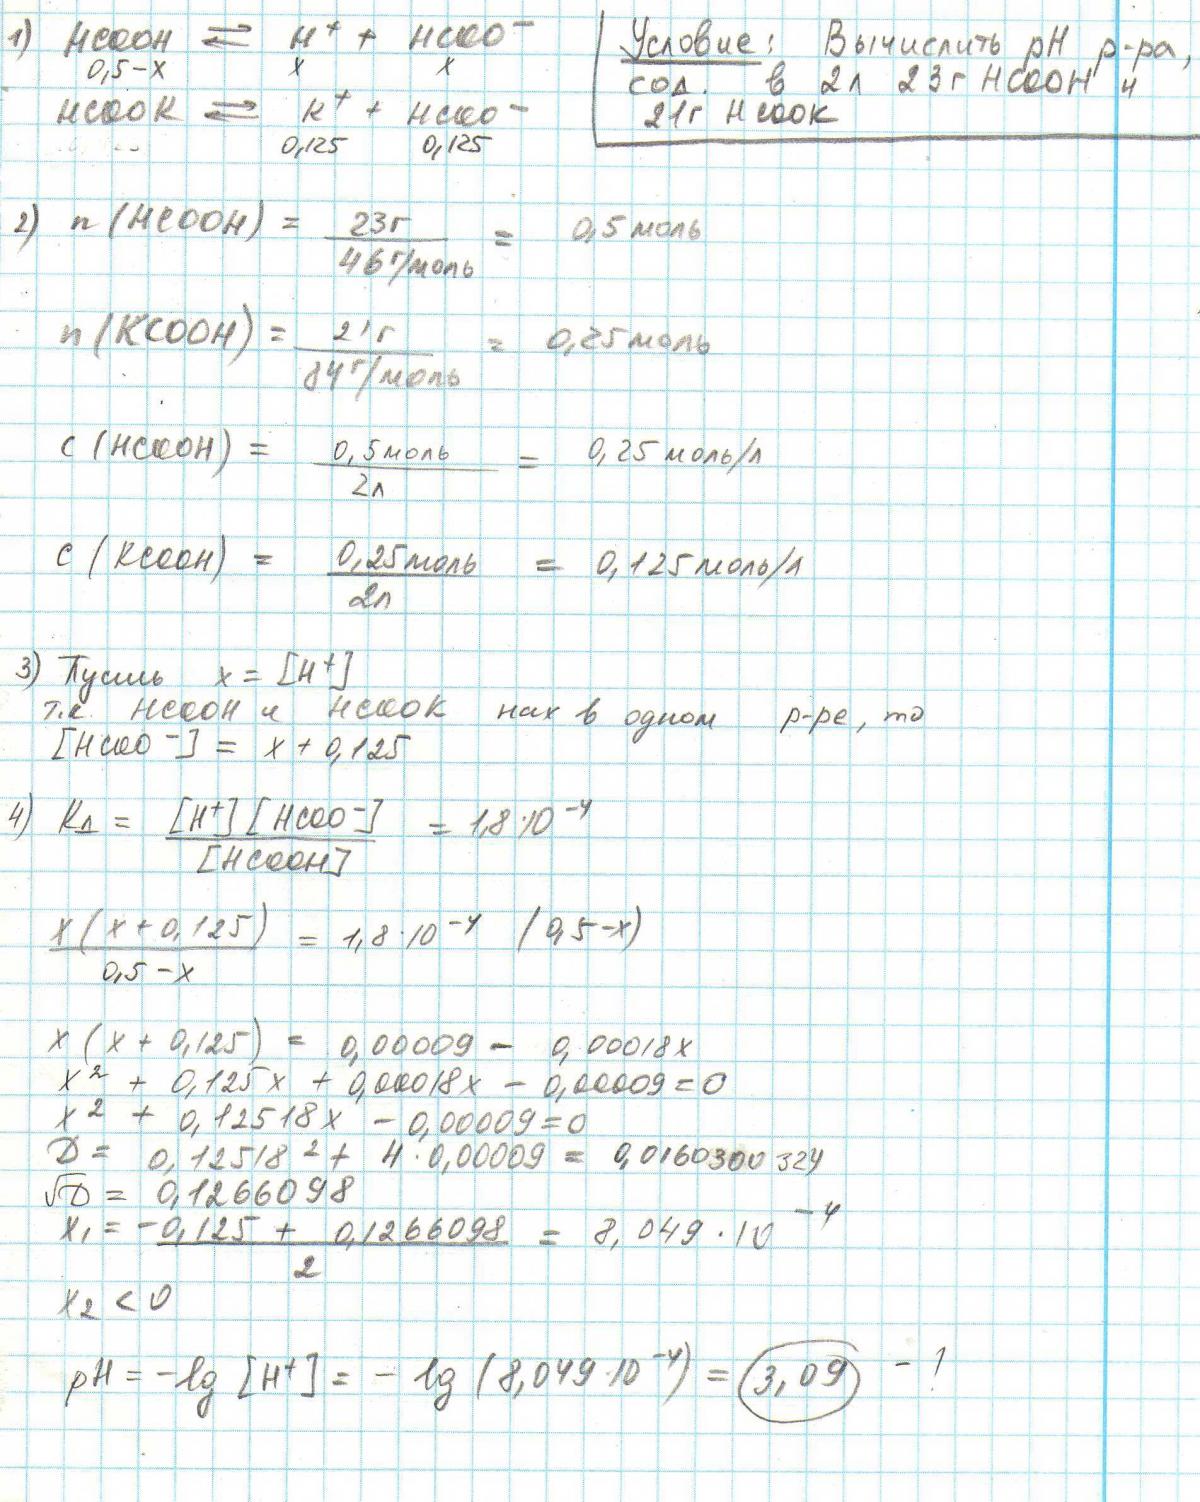 1) HCOOH ⇌ H⁺ + HCOO⁻
0,5-x x x
HCOOK ⇌ K⁺ + HCOO⁻
0,125 0,125
Условие: Вычислить pH р-ра,
сод. в 2л 23г HCOOH и
21г HCOOK
2) n (HCOOH) = 23г / 46г/моль = 0,5 моль
n (KCOOH) = 21г / 84г/моль = 0,25 моль
c (HCOOH) = 0,5 моль / 2л = 0,25 моль/л
c (KCOOH) = 0,25 моль / 2л = 0,125 моль/л
3) Пусть x = [H⁺]
т.к. HCOOH и HCOOK нах в одном р-ре, то
[HCOO⁻] = x + 0,125
4) Kд = [H⁺][HCOO⁻] / [HCOOH] = 1,8·10⁻⁴
x(x+0,125) / 0,5-x = 1,8·10⁻⁴ (0,5-x)
x (x + 0,125) = 0,00009 - 0,00018x
x² + 0,125x + 0,00018x - 0,00009 = 0
x² + 0,12518x - 0,00009 = 0
D = 0,12518² + 4·0,00009 = 0,0160300324
√D = 0,1266098
x₁ = -0,125 + 0,1266098 / 2 = 8,049·10⁻⁴
x₂ < 0
pH = -lg [H⁺] = - lg (8,049·10⁻⁴) = 3,09 - ?